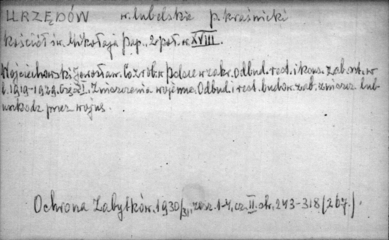 URZĘDÓW w. lubelskie p. kraśnicki
Kościół św. Mikołaja pap., 2 poł. w. XVIII.
Wojciechowski Jarosław. Co zrob. w Polsce w zakr. odbud. rest. i kons. zab. szt. w
l. 1919-1929. Cz. I. Zniszczenia wojenne. Odbud. i rest. budow. zab. zniszcz. lub
uszkodz. przez wojnę.
Ochrona Zabytków. 1930/31, zesz. 1-4, cz. II. str. 243-318 (267.)